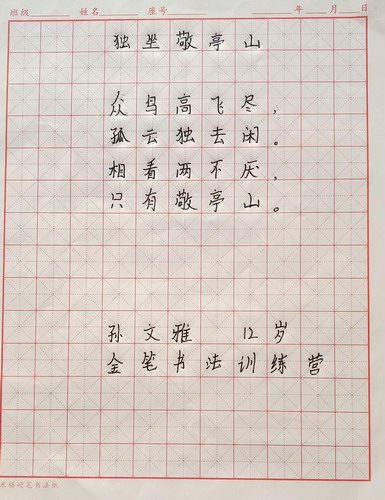 班级 姓名 座号 年 月 日
独坐敬亭山
众鸟高飞尽，
孤云独去闲。
相看两不厌，
只有敬亭山。
孙文雅 12岁
金笔书法训练营
硬笔书法纸